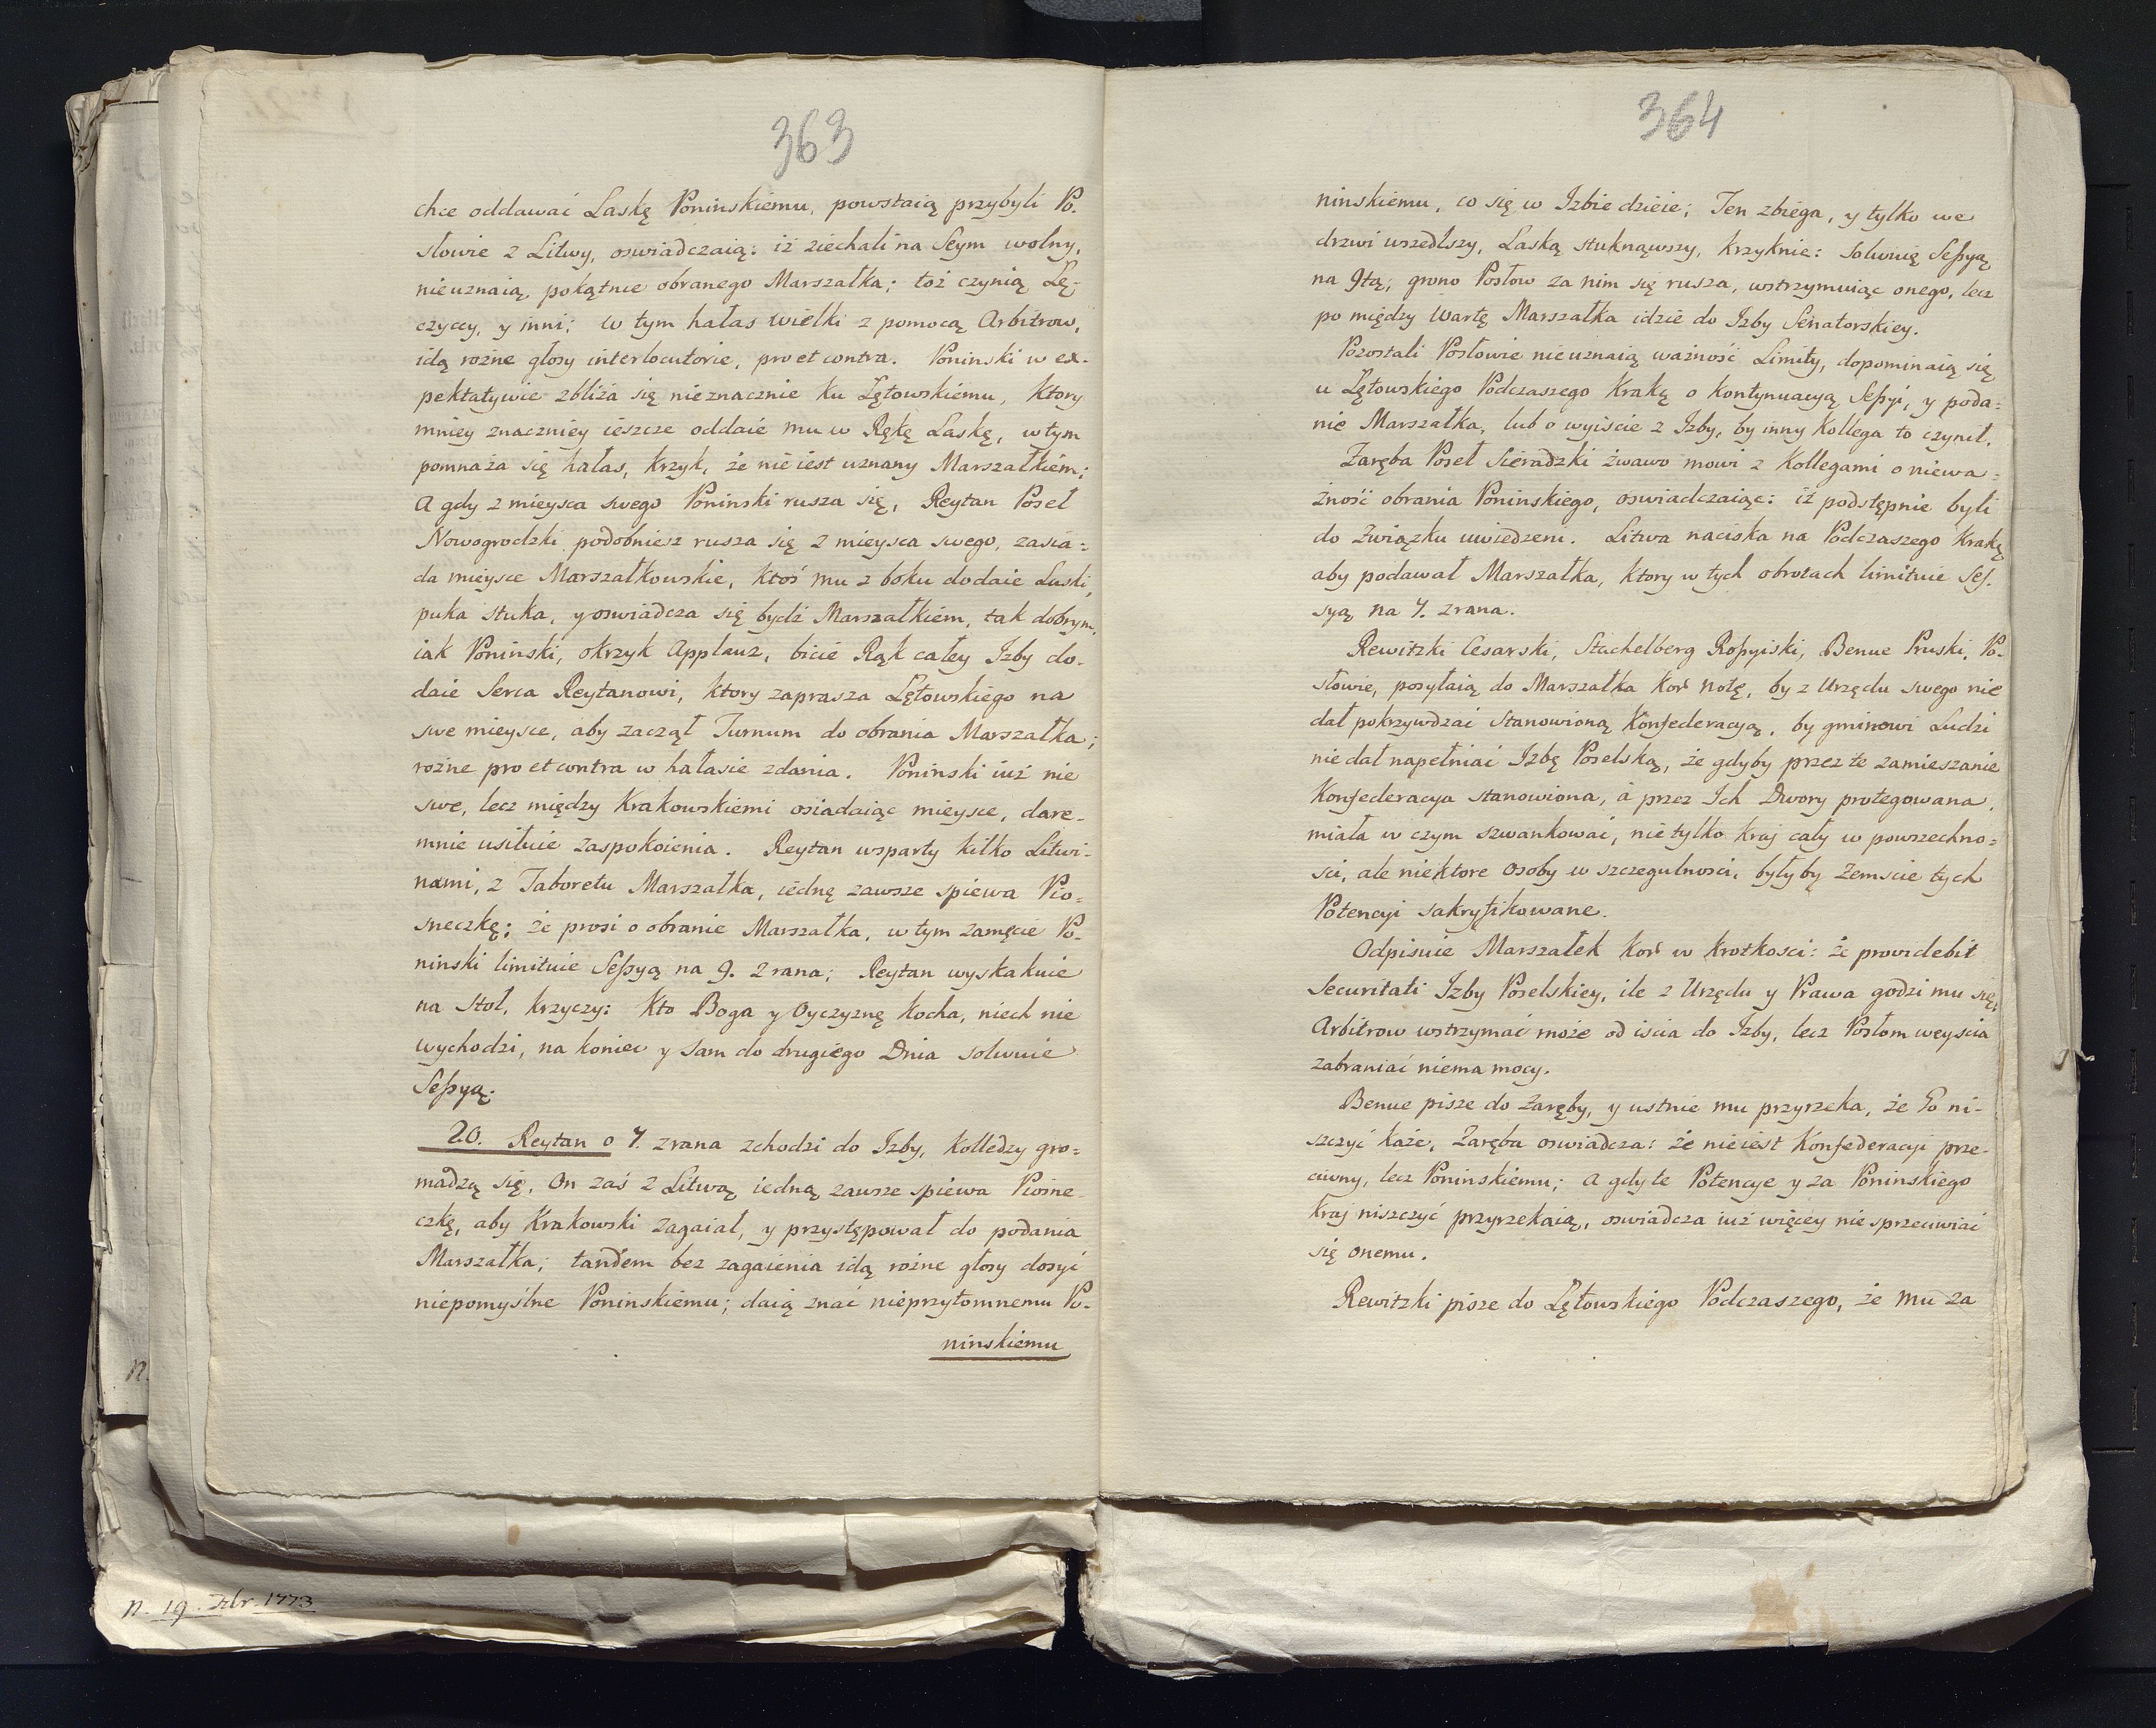 363
chce oddawać Laskę Poninskiemu, powstaią przybyli Po-
słowie z Litwy, oswiadczaią: iż ziechali na Seym wolny,
nieuznaią, pokątnie obranego Marszałka; toż czynią Lę-
czyccy, y inni; w tym hałas wielki z pomocą Arbitrow,
idą rożne głosy interlocutorie, pro et contra. Poninski w ex-
pektatywie zbliża się nieznacznie ku Łętowskiemu, ktory
mniey znaczniey ieszcze oddaie mu w Rękę Laskę, w tym
pomnaża się hałas, krzyk, że nie iest uznany Marszałkiem;
A gdy z mieysca swego Poninski rusza się, Reytan Poseł
Nowogrodzki podobniesz rusza się z mieysca swego, zasia-
da mieysce Marszałkowskie, ktoś mu z boku dodaie Laski,
puka stuka, y oswiadcza się bydź Marszałkiem, tak dobrym,
iak Poninski, okrzyk Applauz, bicie Rąk całey Izby do-
daie Serca Reytanowi, ktory zaprasza Łętowskiego na
swe mieysce, aby zaczął Turnum do obrania Marszałka;
rożne pro et contra w hałasie zdania. Poninski iuż nie
swe, lecz między Krakowskiemi osiadaiąc mieysce, dare-
mnie usiłuie zaspokoienia. Reytan wsparty kilko Litwi-
nami, z Taboretu Marszałka, iednę zawsze spiewa Pio-
sneczkę; że prosi o obranie Marszałka, w tym zamęcie Po-
ninski limituie Seßyą na 9. z rana; Reytan wyskakuie
na Stoł, krzyczy: kto Boga y Oyczyznę kocha, niech nie
wychodzi, na koniec y sam do drugiego Dnia solwuie
Seßyą.
20. Reytan o 7. zrana zchodzi do Izby, kolledzy gro-
madzą się, On zaś z Litwą iedną zawsze spiewa Piosne
czkę, aby Krakowski zagaiał, y przystępował do podania
Marszałka; tandem bez zagaienia idą rożne głosy dosyć
niepomyślne Poninskiemu; daią znać nieprzytomnemu Po-
ninskiemu
364
ninskiemu, co się w Izbie dzieie; Ten zbiega, y tylko we
drzwi wszedłszy, Laską stuknąwszy, krzyknie: solwuię Seßyą
na 9tą; grono Posłow za nim się rusza, wstrzymuiąc onego, lecz
po między Wartę Marszałka idzie do Izby Senatorskiey.
Pozostali Posłowie nieuznaią ważność Limity, dopominaią się
u Łętowskiego Podczaszego Krakḡ o kontynuacyą Seßyi, y poda-
nie Marszałka, lub o wyiscie z Izby, by inny Kollega to czynił.
Zaręba Poseł Sieradzki żwawo mowi z Kollegami o niewa-
żność obrania Poninskiego, oswiadczaiąc: iż podstępnie byli
do Związku uwiedzeni. Litwa naciska na Podczaszego Krakḡ
aby podawał Marszałka, ktory w tych obrotach limituie Ses-
syą na 7. zrana.
Rewitzki Cesarski, Stachelberg Roßyiski, Benue Pruski, Po-
słowie, posyłaią do Marszałka Kor̄ notę, by z Urzędu swego nie
dał pokrzywdzać stanowioną Konfederacyą, by gminowi Ludzi
nie dał napełniać Izbę Poselską, że gdyby przez te zamieszanie
Konfederacya stanowiona, á przez Ich Dwory protegowana,
miała w czym szwankować, nie tylko kraj cały w powszechno-
sci, ale niektore Osoby w szczegulnosci, byłyby Zemscie tych
Potencyi sakryfikowane.
Odpisuie Marszałek Kor̄ w krotkosci: że providebit
Securitati Izby Poselskiey, ile z Urzędu y Prawa godzi mu się,
Arbitrow wstrzymać może od iscia do Izby, lecz Posłom weyscia
zabraniać niema mocy.
Benue pisze do Zaręby, y ustnie mu przyrzeka, że Go ni-
szczyć każe, Zaręba oswiadcza: że nieiest Konfederacyi prze-
ciwny, lecz Poninskiemu; a gdy te Potencye y za Poninskiego
kraj niszczyć przyrzekaią, oswiadcza iuż więcey nie sprzeciwiać
się onemu.
Rewitzki pisze do Łętowskiego Podczaszego, że mu za
n. 19. 1773